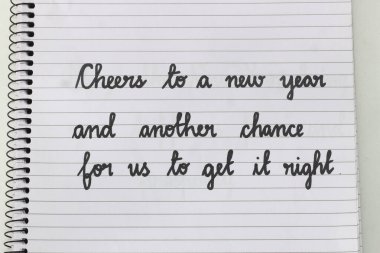 Cheers to a new year
and another chance
for us to get it right